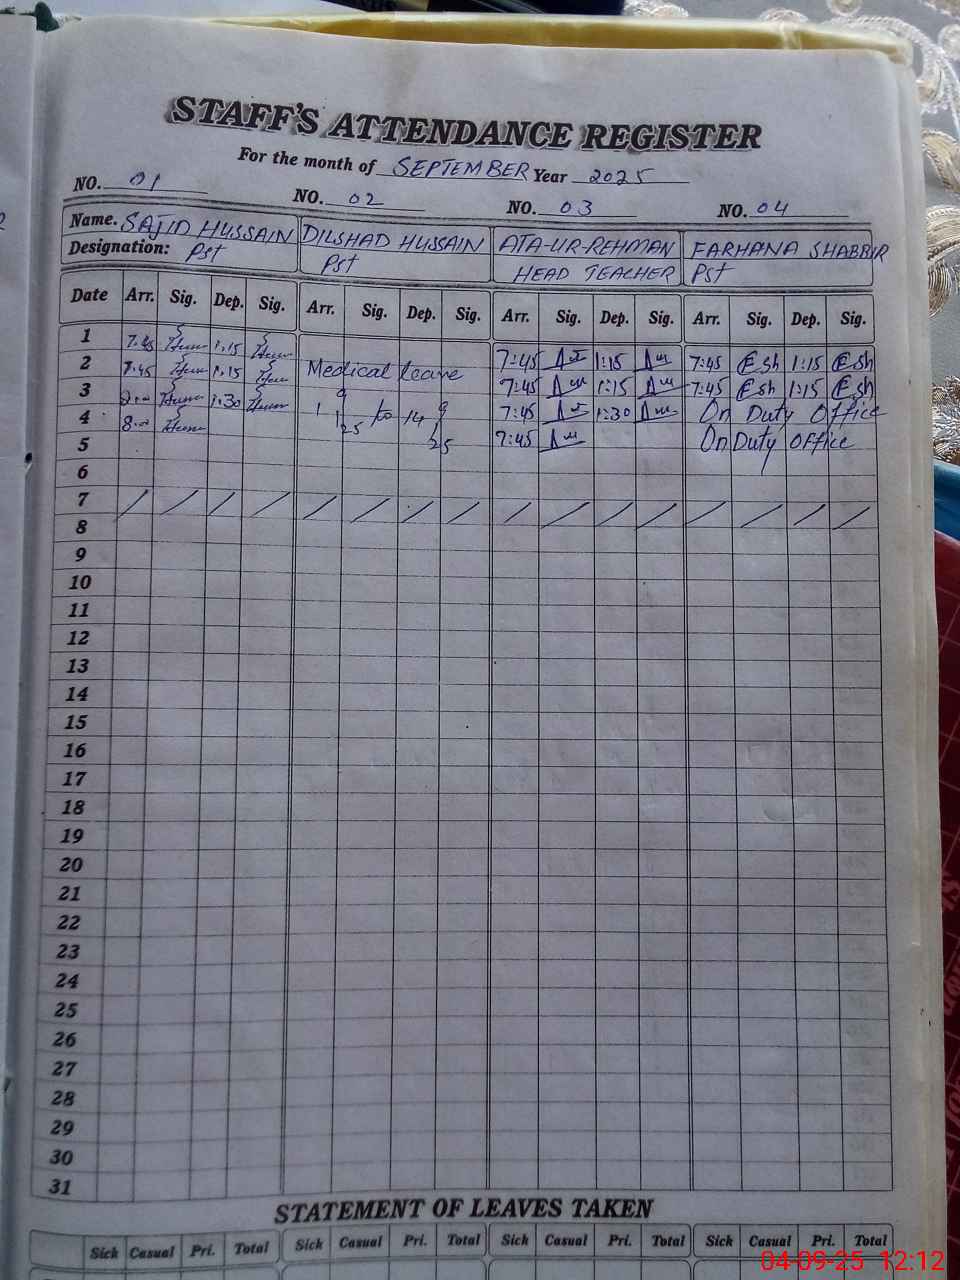 STAFF'S ATTENDANCE REGISTER
For the month of SEPTEMBER Year 2025
NO. 01 NO. 02 NO. 03 NO. 04
Name. SAJID HUSSAIN DILSHAD HUSSAIN ATA-UR-REHMAN FARHANA SHABBIR
Designation: Pst Pst HEAD TEACHER Pst
Date Arr. Sig. Dep. Sig. Arr. Sig. Dep. Sig. Arr. Sig. Dep. Sig. Arr. Sig. Dep. Sig.
1 7.45 1.15 7:45 1:15 7:45 1:15
2 7.45 1.15 Medical leave 7:45 1:15 7:45 1:15
3 1.30 1 9 25 to 14 9 25 7:45 1:30 On Duty Office
4 8.00 7:45 On Duty office
5
6
7
8
9
10
11
12
13
14
15
16
17
18
19
20
21
22
23
24
25
26
27
28
29
30
31
STATEMENT OF LEAVES TAKEN
Sick Casual Pri. Total Sick Casual Pri. Total Sick Casual Pri. Total Sick Casual Pri. Total
04-09-25 12:12